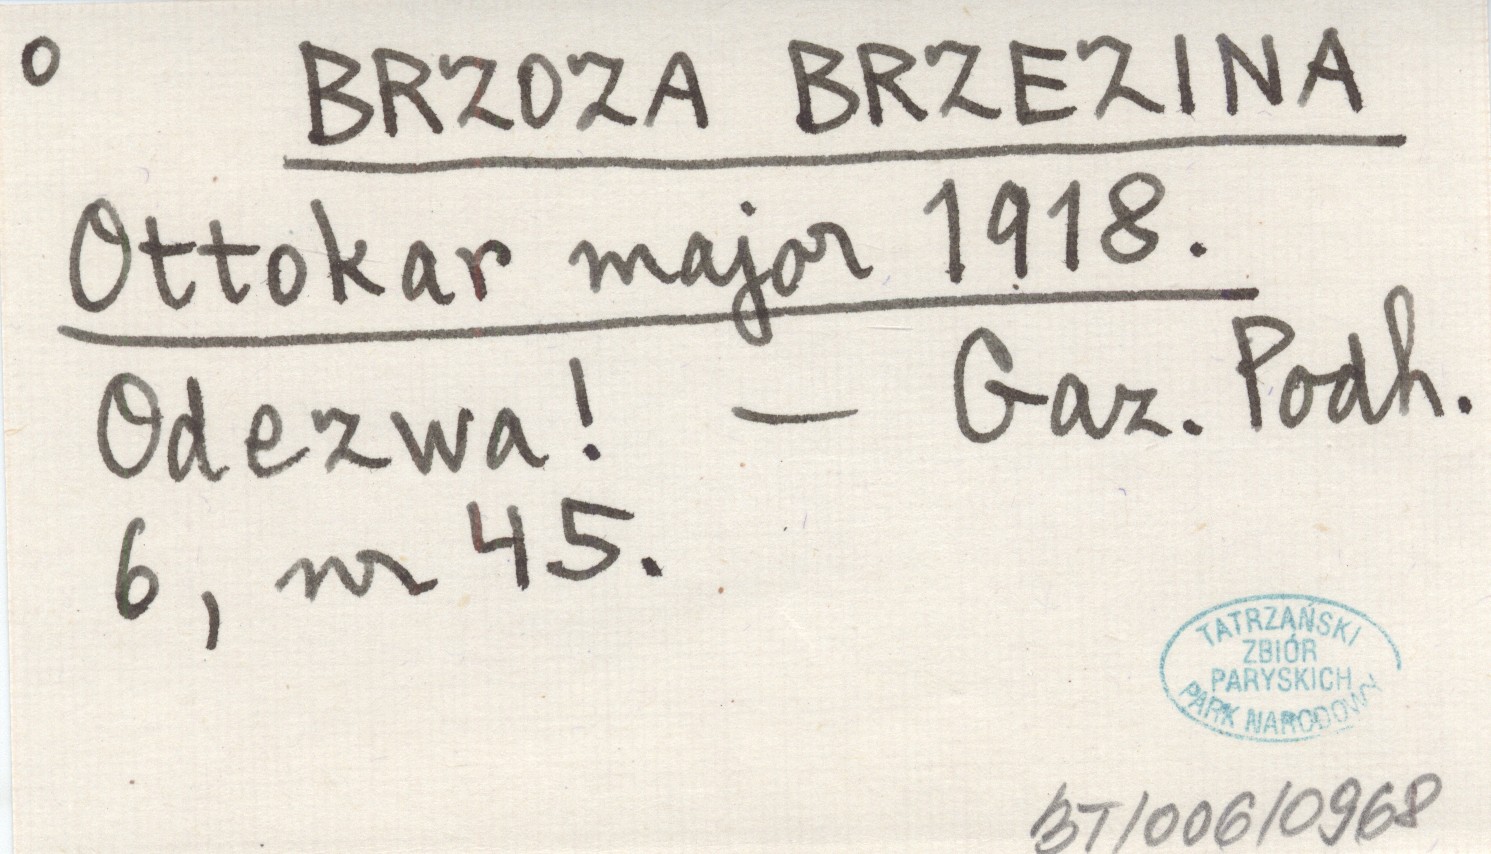 o BRZOZA BRZEZINA
Ottokar major 1918.
Odezwa! — Gaz. Podh.
6, nr 45.
TATRZAŃSKI
ZBIÓR
PARYSKICH
PARK NARODOWY
BT/006/0968